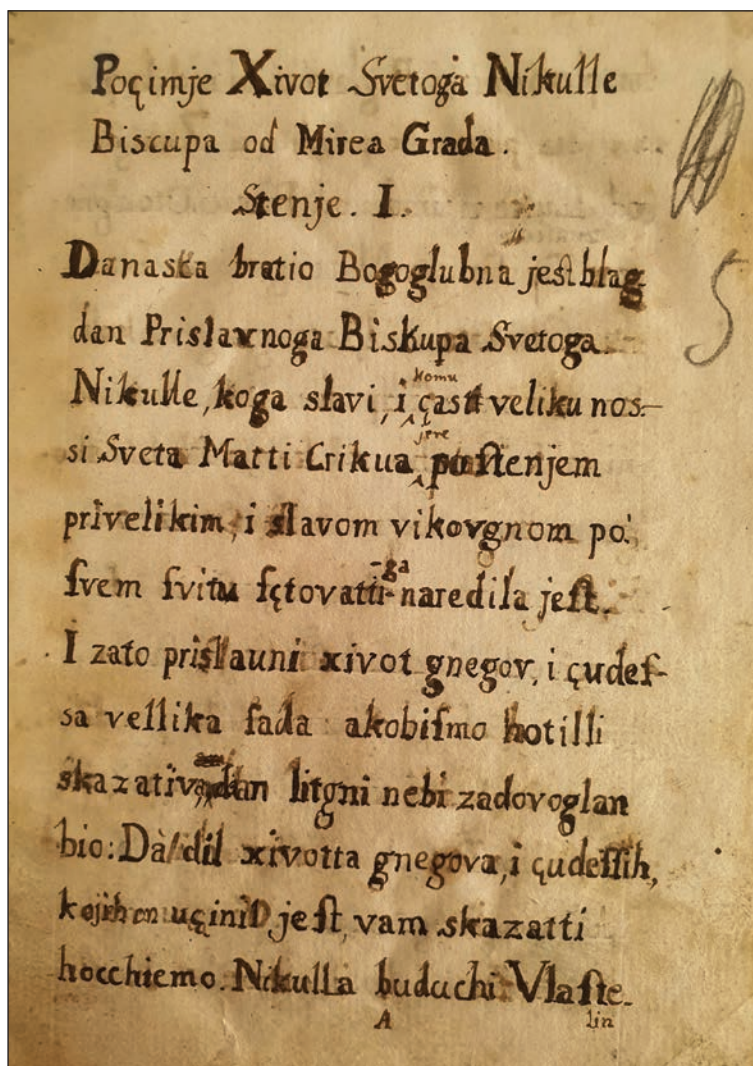 Poçimje Xivot Svetoga Nikulle
Biscupa od Mirea Grada.
Stenje. I.
Danaska bratio Bogoglubna jeſt blag
dan Prislavnoga Biskupa Svetoga
Nikulle, koga slavi, i komu çast veliku nos-
si Sveta Matti Crikua, jere poſtenjem
privelikim, i slavom vikovgnom po
ſvem ſvitu ſçtovatti-ga naredila jeſt.
I zato prislauni xivot gnegov, i çudeſ-
sa vellika ſada akobiſmo hotilli
skazati vam dan litgni nebi zadovoglan
bio: Dà dil xivotta gnegova, i çudeſſih,
kojih on uçinil jeſt, vam skazatti
hocchiemo. Nikulla buduchi Vlaſte-
A lin
5